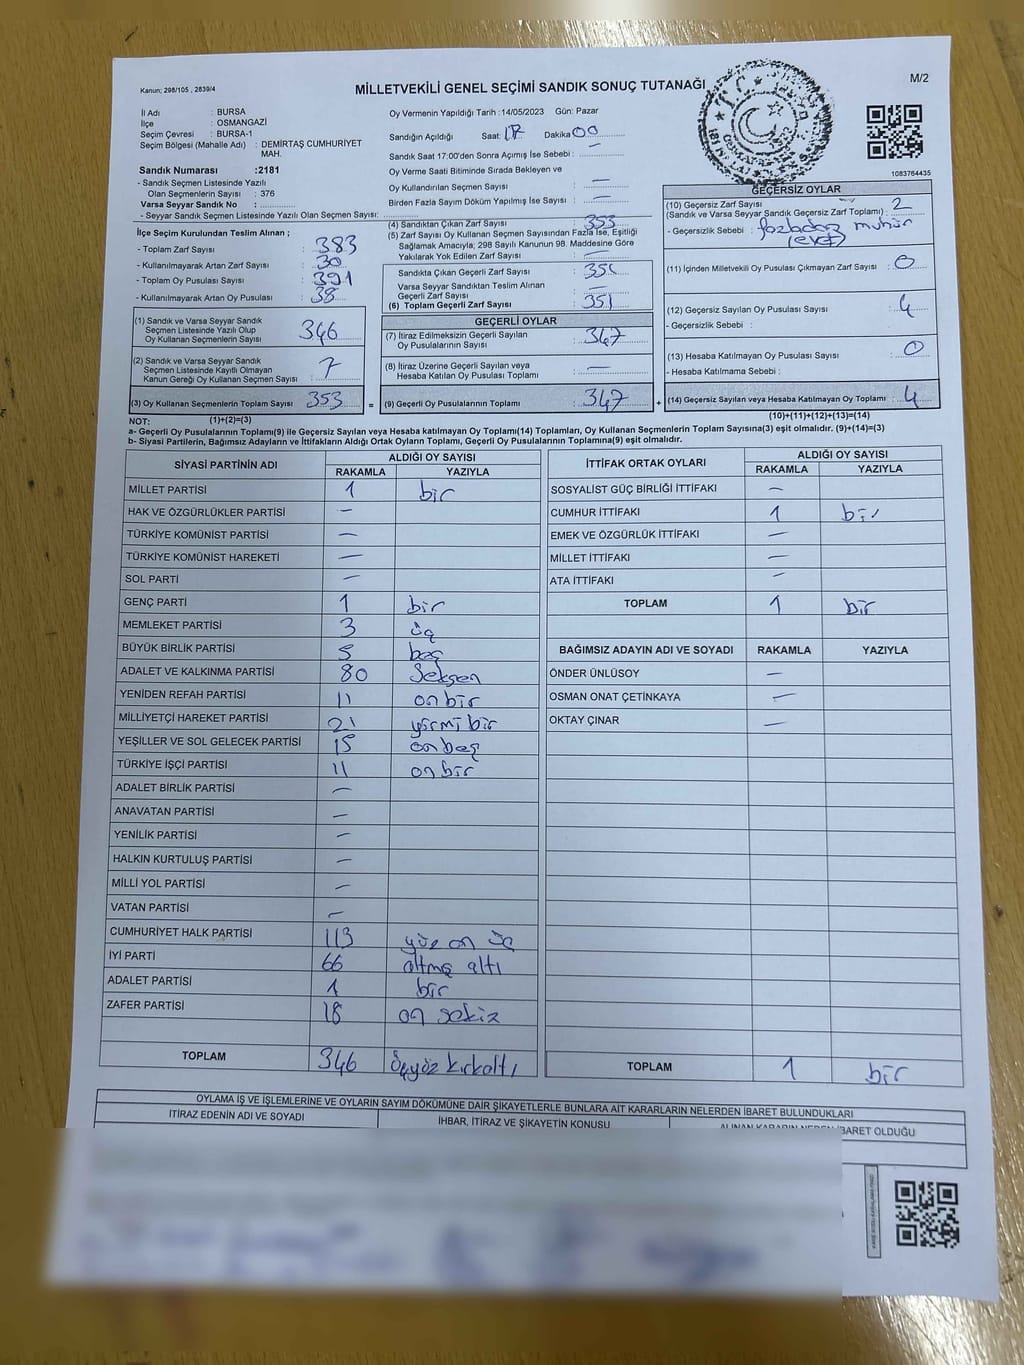 Kanun; 298/105 , 2839/4
MİLLETVEKİLİ GENEL SEÇİMİ SANDIK SONUÇ TUTANAĞI
M/2
İl Adı : BURSA
İlçe : OSMANGAZİ
Seçim Çevresi : BURSA-1
Seçim Bölgesi (Mahalle Adı) : DEMİRTAŞ CUMHURİYET
MAH.
Sandık Numarası :2181
- Sandık Seçmen Listesinde Yazılı
Olan Seçmenlerin Sayısı : 376
Varsa Seyyar Sandık No :
- Seyyar Sandık Seçmen Listesinde Yazılı Olan Seçmen Sayısı:
Oy Vermenin Yapıldığı Tarih : 14/05/2023 Gün: Pazar
Sandığın Açıldığı Saat: 17 Dakika 00
Sandık Saat 17:00'den Sonra Açımış İse Sebebi : —
Oy Verme Saati Bitiminde Sırada Bekleyen ve
Oy Kullandırılan Seçmen Sayısı : —
Birden Fazla Sayım Döküm Yapılmış İse Sayısı : —
1083764435
İlçe Seçim Kurulundan Teslim Alınan ;
- Toplam Zarf Sayısı : 383
- Kullanılmayarak Artan Zarf Sayısı : 30
- Toplam Oy Pusulası Sayısı : 391
- Kullanılmayarak Artan Oy Pusulası : 38
(1) Sandık ve Varsa Seyyar Sandık
Seçmen Listesinde Yazılı Olup
Oy Kullanan Seçmenlerin Sayısı : 346
(2) Sandık ve Varsa Seyyar Sandık
Seçmen Listesinde Kayıtlı Olmayan
Kanun Gereği Oy Kullanan Seçmen Sayısı : 7
(3) Oy Kullanan Seçmenlerin Toplam Sayısı 353
(1)+(2)=(3)
(4) Sandıktan Çıkan Zarf Sayısı : 353
(5) Zarf Sayısı Oy Kullanan Seçmen Sayısından Fazla İse, Eşitliği
Sağlamak Amacıyla; 298 Sayılı Kanunun 98. Maddesine Göre
Yakılarak Yok Edilen Zarf Sayısı : —
Sandıkta Çıkan Geçerli Zarf Sayısı : 351
Varsa Seyyar Sandıktan Teslim Alınan
Geçerli Zarf Sayısı : —
(6) Toplam Geçerli Zarf Sayısı : 351
GEÇERLİ OYLAR
(7) İtiraz Edilmeksizin Geçerli Sayılan
Oy Pusulalarının Sayısı : 347
(8) İtiraz Üzerine Geçerli Sayılan veya
Hesaba Katılan Oy Pusulası Toplamı : —
= (9) Geçerli Oy Pusulalarının Toplamı : 347 +
GEÇERSİZ OYLAR
(10) Geçersiz Zarf Sayısı
(Sandık ve Varsa Seyyar Sandık Geçersiz Zarf Toplamı) : 2
- Geçersizlik Sebebi : fazladan mühür
(evet)
(11) İçinden Milletvekili Oy Pusulası Çıkmayan Zarf Sayısı : 0
(12) Geçersiz Sayılan Oy Pusulası Sayısı : 4
- Geçersizlik Sebebi :
(13) Hesaba Katılmayan Oy Pusulası Sayısı : 0
- Hesaba Katılmama Sebebi :
(14) Geçersiz Sayılan veya Hesaba Katılmayan Oy Toplamı : 4
(10)+(11)+(12)+(13)=(14)
NOT:
a- Geçerli Oy Pusulalarının Toplamı(9) ile Geçersiz Sayılan veya Hesaba katılmayan Oy Toplamı(14) Toplamları, Oy Kullanan Seçmenlerin Toplam Sayısına(3) eşit olmalıdır. (9)+(14)=(3)
b- Siyasi Partilerin, Bağımsız Adayların ve İttifakların Aldığı Ortak Oyların Toplamı, Geçerli Oy Pusulalarının Toplamına(9) eşit olmalıdır.
SİYASİ PARTİNİN ADI ALDIĞI OY SAYISI
RAKAMLA YAZIYLA
MİLLET PARTİSİ 1 bir
HAK VE ÖZGÜRLÜKLER PARTİSİ —
TÜRKİYE KOMÜNİST PARTİSİ —
TÜRKİYE KOMÜNİST HAREKETİ —
SOL PARTİ —
GENÇ PARTİ 1 bir
MEMLEKET PARTİSİ 3 üç
BÜYÜK BİRLİK PARTİSİ 5 beş
ADALET VE KALKINMA PARTİSİ 80 Seksen
YENİDEN REFAH PARTİSİ 11 on bir
MİLLİYETÇİ HAREKET PARTİSİ 21 yirmi bir
YEŞİLLER VE SOL GELECEK PARTİSİ 15 on beş
TÜRKİYE İŞÇİ PARTİSİ 11 on bir
ADALET BİRLİK PARTİSİ —
ANAVATAN PARTİSİ —
YENİLİK PARTİSİ —
HALKIN KURTULUŞ PARTİSİ —
MİLLİ YOL PARTİSİ —
VATAN PARTİSİ —
CUMHURİYET HALK PARTİSİ 113 yüz on üç
İYİ PARTİ 66 altmış altı
ADALET PARTİSİ 1 bir
ZAFER PARTİSİ 18 on sekiz
TOPLAM 346 Üçyüz kırkaltı
İTTİFAK ORTAK OYLARI ALDIĞI OY SAYISI
RAKAMLA YAZIYLA
SOSYALİST GÜÇ BİRLİĞİ İTTİFAKI —
CUMHUR İTTİFAKI 1 bir
EMEK VE ÖZGÜRLÜK İTTİFAKI —
MİLLET İTTİFAKI —
ATA İTTİFAKI —
TOPLAM 1 bir
BAĞIMSIZ ADAYIN ADI VE SOYADI RAKAMLA YAZIYLA
ÖNDER ÜNLÜSOY —
OSMAN ONAT ÇETİNKAYA —
OKTAY ÇINAR —
TOPLAM 1 bir
OYLAMA İŞ VE İŞLEMLERİNE VE OYLARIN SAYIM DÖKÜMÜNE DAİR ŞİKAYETLERLE BUNLARA AİT KARARLARIN NELERDEN İBARET BULUNDUKLARI
İTİRAZ EDENİN ADI VE SOYADI İHBAR, İTİRAZ VE ŞİKAYETİN KONUSU ALINAN KARARIN NEDEN İBARET OLDUĞU